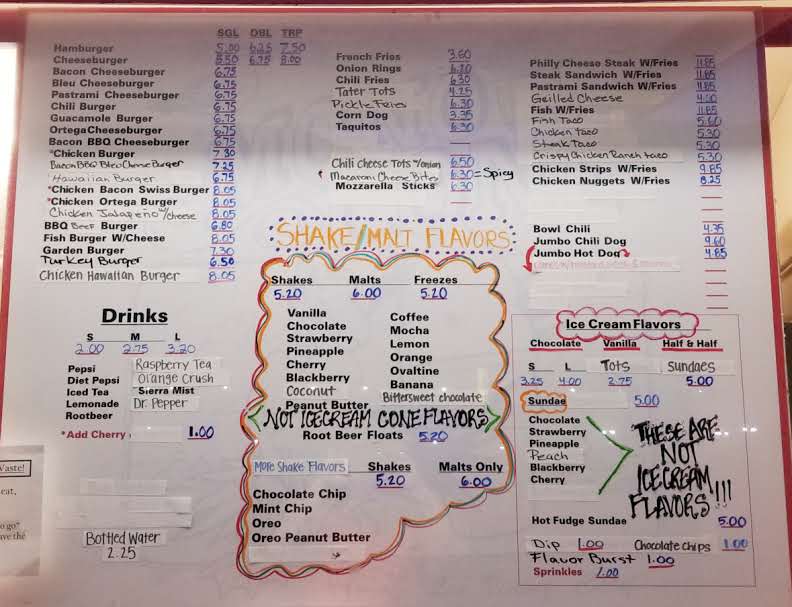 SGL DBL TRP
Hamburger 5.00 6.25 7.50
Cheeseburger 5.50 6.75 8.00
Bacon Cheeseburger 6.75
Bleu Cheeseburger 6.75
Pastrami Cheeseburger 6.75
Chili Burger 6.75
Guacamole Burger 6.75
Ortega Cheeseburger 6.75
Bacon BBQ Cheeseburger 6.75
*Chicken Burger 7.30
Bacon BBQ Bleu Cheese Burger 7.25
Hawaiian Burger 6.75
*Chicken Bacon Swiss Burger 8.05
*Chicken Ortega Burger 8.05
Chicken Jalapeño w/cheese 8.05
BBQ Beef Burger 6.80
Fish Burger W/Cheese 8.05
Garden Burger 7.30
Turkey Burger 6.50
Chicken Hawaiian Burger 8.05
Drinks
S M L
2.00 2.75 3.20
Pepsi Raspberry Tea
Diet Pepsi Orange Crush
Iced Tea Sierra Mist
Lemonade Dr. Pepper
Rootbeer
*Add Cherry 1.00
Bottled Water
2.25
Waste!
eat,
o go?
ave the
French Fries 3.60
Onion Rings
Chili Fries 6.30
Tater Tots 4.25
Pickle Fries 6.30
Corn Dog 3.35
Taquitos 6.30
Chili Cheese Tots w/onion 6.50
Macaroni Cheese Bites 6.30 = Spicy
Mozzarella Sticks 6.30
SHAKE/MALT FLAVORS
Shakes Malts Freezes
5.20 6.00 5.20
Vanilla Coffee
Chocolate Mocha
Strawberry Lemon
Pineapple Orange
Cherry Ovaltine
Blackberry Banana
Coconut Bittersweet chocolate
Peanut Butter
NOT ICECREAM CONE FLAVORS
Root Beer Floats 5.20
More Shake Flavors Shakes Malts Only
5.20 6.00
Chocolate Chip
Mint Chip
Oreo
Oreo Peanut Butter
Philly Cheese Steak W/Fries 11.85
Steak Sandwich W/Fries 11.85
Pastrami Sandwich W/Fries 11.85
Grilled Cheese 4.00
Fish W/Fries 11.85
Fish Taco 5.60
Chicken taco 5.30
Steak Taco 5.30
Crispy Chicken Ranch taco 5.30
Chicken Strips W/Fries 9.85
Chicken Nuggets W/Fries 8.25
Bowl Chili 4.35
Jumbo Chili Dog 9.60
Jumbo Hot Dog 4.85
Ice Cream Flavors
Chocolate Vanilla Half & Half
S L Tots Sundaes
3.25 4.00 2.75 5.00
Sundae 5.00
Chocolate
Strawberry
Pineapple
Peach
Blackberry
Cherry
THESE ARE
NOT
ICECREAM
FLAVORS!!!
Hot Fudge Sundae 5.00
Dip 1.00 Chocolate Chips 1.00
Flavor Burst 1.00
Sprinkles 1.00